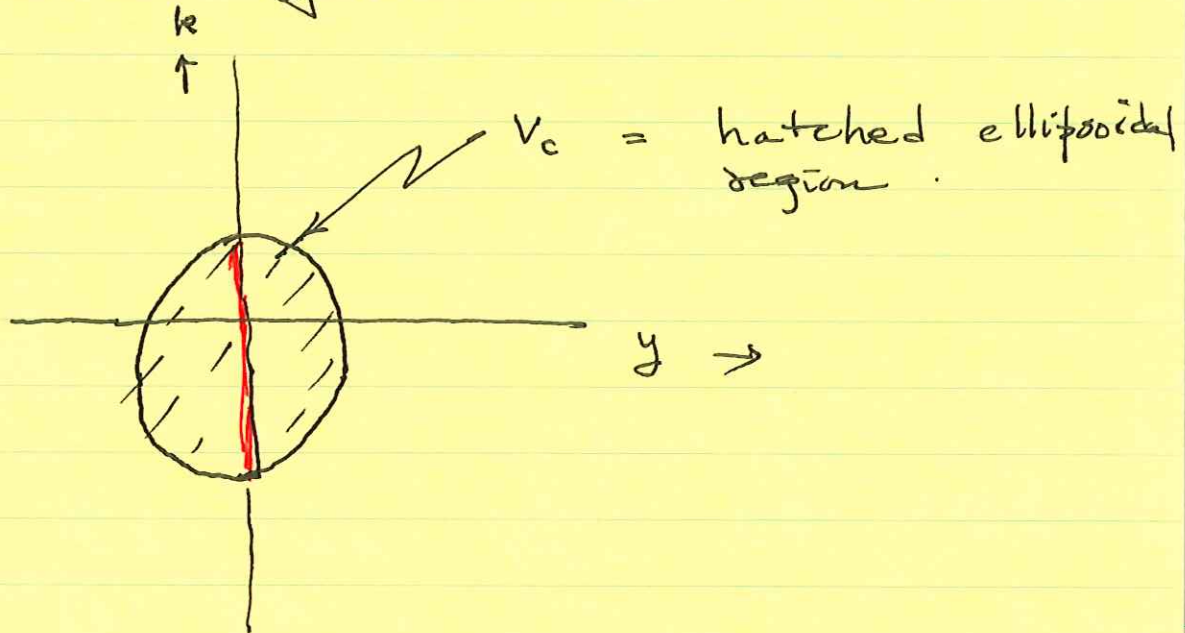 k
↑
V_c = hatched ellipsoidal
region.
y →